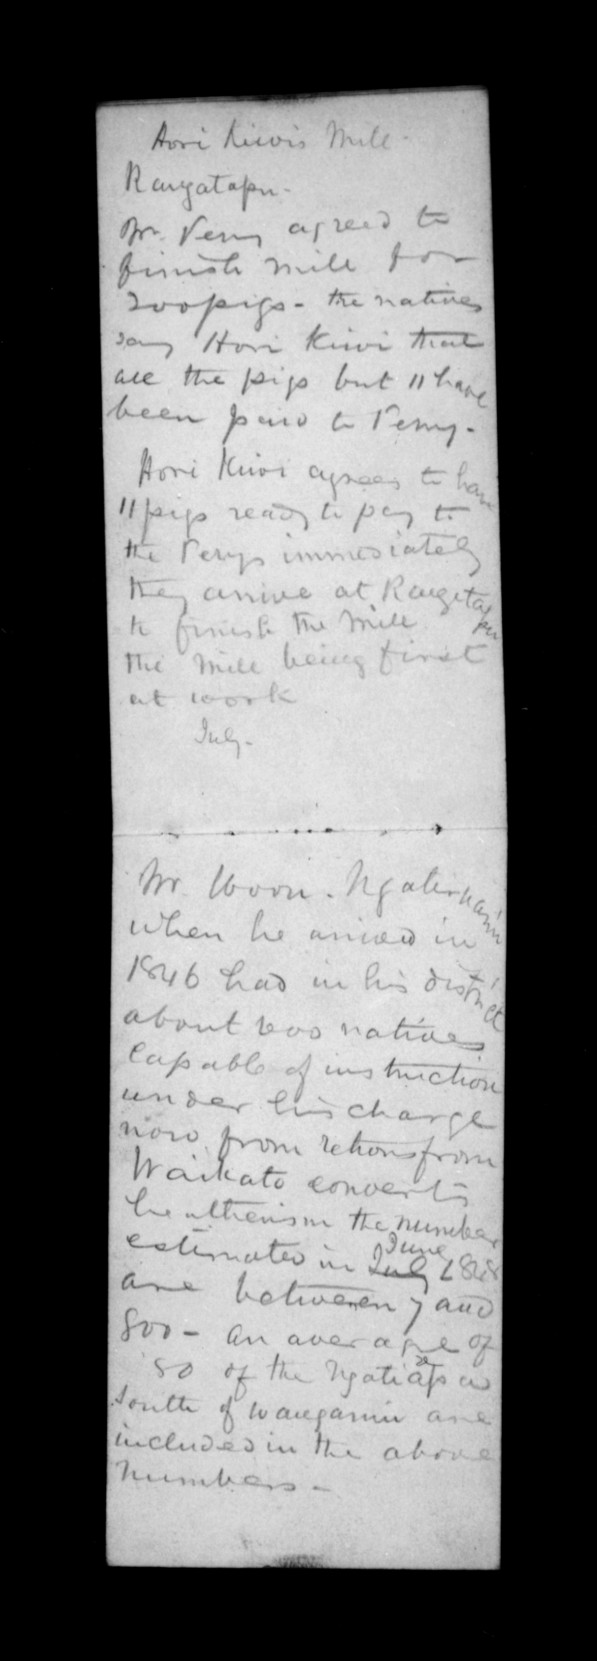 Hori Kiwis Mill -
Rangatapu -
Mr. Perry agreed to
finish mill for
200 pigs - the natives
say Hori Kiwi that
all the pigs but 11 have
been paid to Perry -
Hori Kiwi agrees to have
11 pigs ready to pay to
the Perrys immediately
they arrive at Rangatapu
to finish the Mill
the Mill being first
at work
July -
Mr. Woon -
when he arrived in
1846 had in his district
about natives
capable of instruction
under his charge
now from from
Waikato converts
heathenism the number
estimated in July June 1848
are between 7 and
800 - an average of
80 of the Ngatiapa
south of Wanganui are
included in the above
numbers -